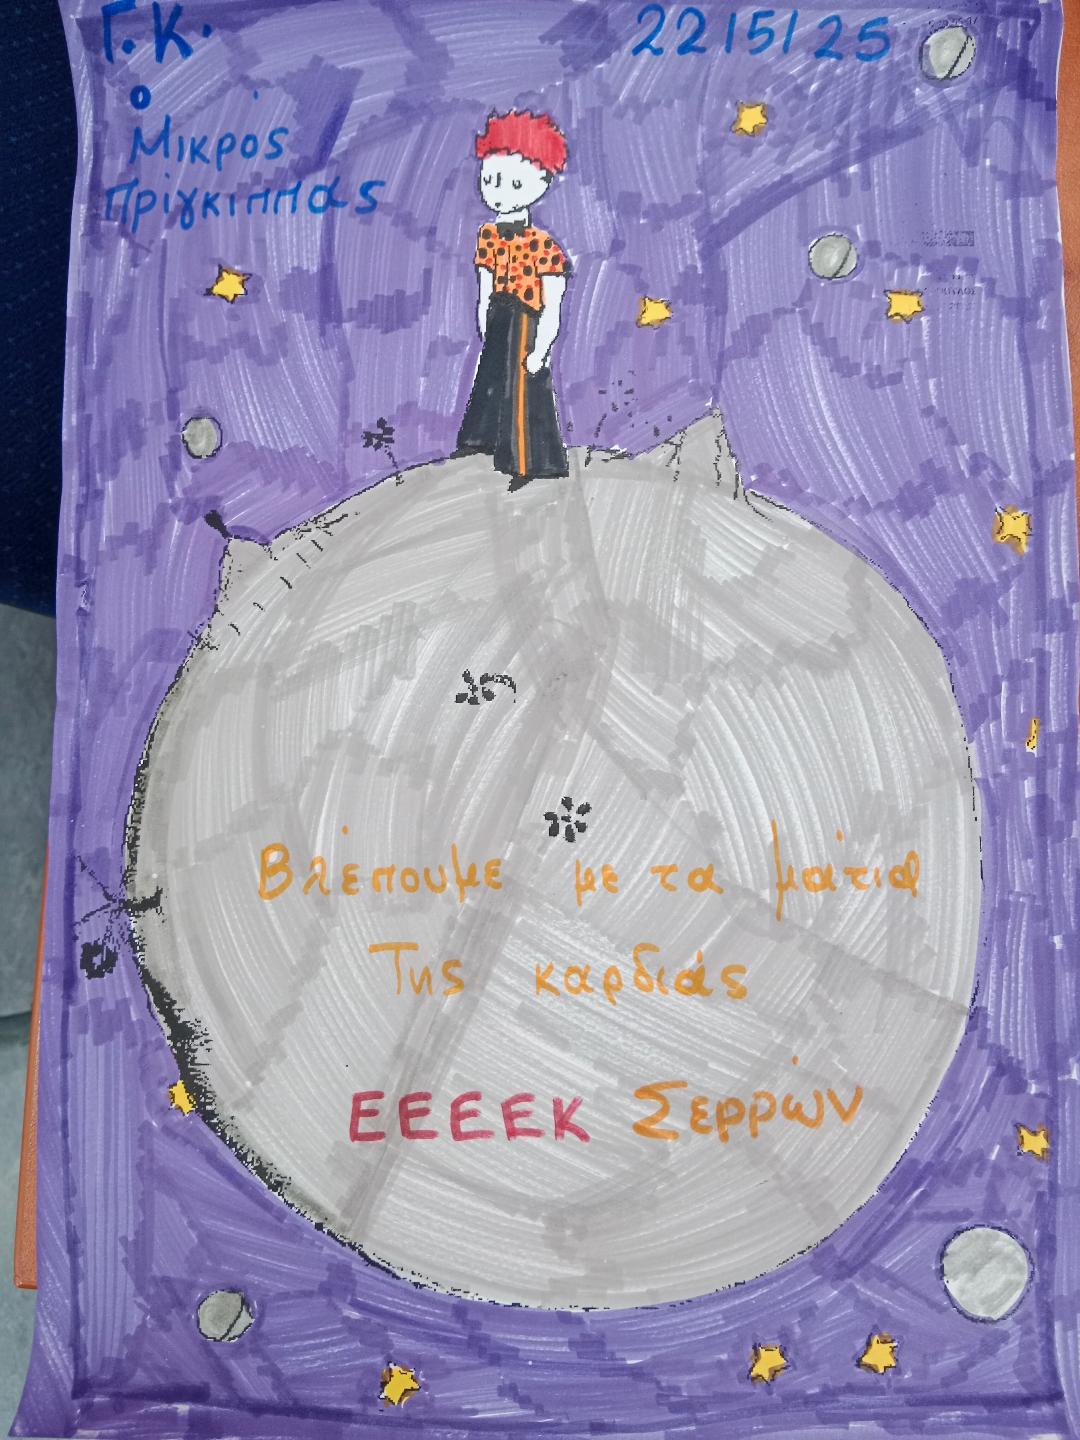 Γ.Κ. 22/5/25
ο
Μικρός
Πρίγκιππας
Βλέπουμε με τα μάτια
Της καρδιάς
ΕΕΕΕΚ Σερρών